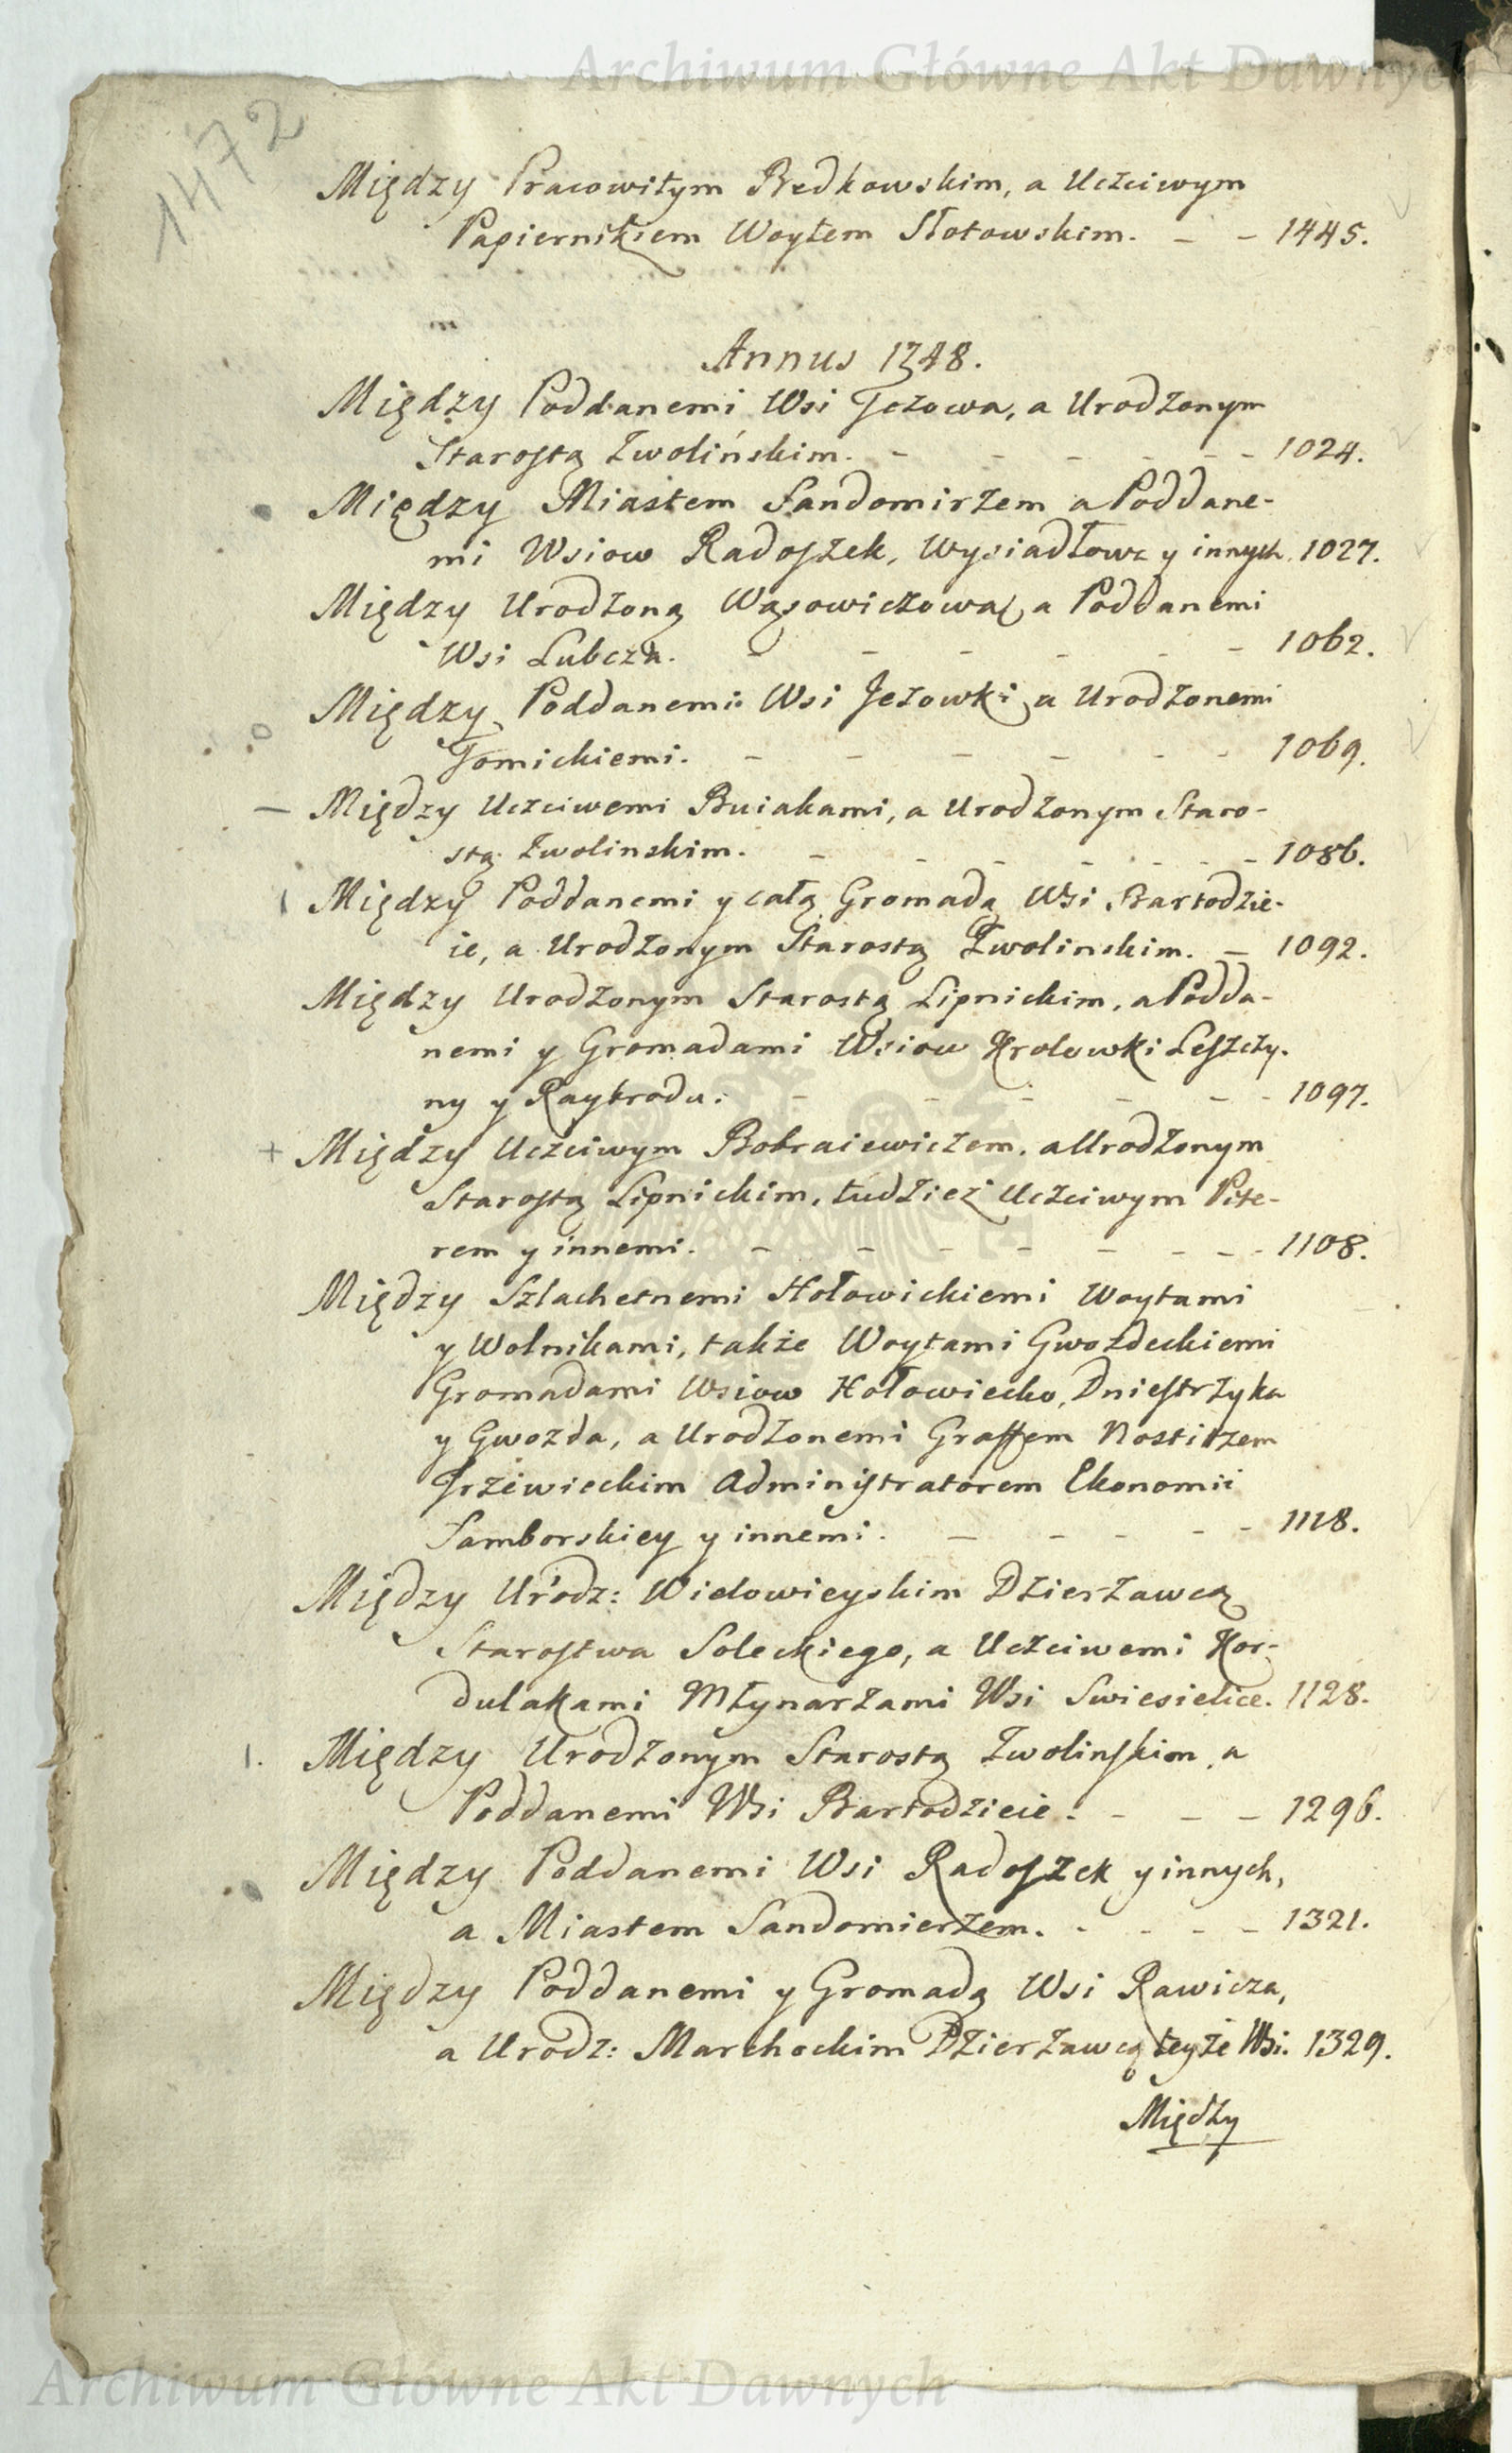 Archiwum Główne Akt Dawnych
1472
Między Pracowitym Bedkowskim, a Uczciwym
Papiernikiem Woytem Słotowskim. - - 1445.
Annus 1748.
Między Poddanemi Wsi Jezowa, a Urodzonym
Starostą Zwolińskim. - - - - - - 1024.
Między Miastem Sandomirzem a Poddane-
mi Wsiow Radoszek, Wysiadłowa y innych 1027.
Między Urodzoną Wąsowiczową, a Poddanemi
Wsi Lubcza. - - - - - - 1062.
Między Poddanemi Wsi Jezowki a Urodzonemi
Tomickiemi. - - - - - - 1069.
— Między Uczciwemi Buiakami, a Urodzonym Staro-
stą Zwolinskim. - - - - - - - 1086.
Między Poddanemi y całą Gromadą Wsi Bartodzie-
ie, a Urodzonym Starostą Zwolinskim. - 1092.
Między Urodzonym Starostą Lipnickim, a Podda-
nemi y Gromadami Wsiow Krolowki Leszczy-
ny y Raybrodu. - - - - - - 1097.
+ Między Uczciwym Bobraiewiczem, a Urodzonym
Starostą Lipnickim, tudzież Uczciwym Pite-
rem y innemi. - - - - - - - - 1108.
Między Szlachetnemi Hołowickiemi Woytami
y Wolnikami, także Woytami Gwozdeckiemi
Gromadami Wsiow Hołowiecko, Dniestrzyka
y Gwozda, a Urodzonemi Graffem Nostitzem
Drzewieckim Administratorem Ekonomii
Samborskiey y innemi. - - - - - 1118.
Między Urodz: Wielowieyskim Dzierzawcą
Starostwa Soleckiego, a Uczciwemi Kor-
dulakami Młynarzami Wsi Swiesielice. 1128.
1. Między Urodzonym Starostą Zwolinskim, a
Poddanemi Wsi Bartodzieie. - - - 1296.
Między Poddanemi Wsi Radoszek y innych,
a Miastem Sandomierzem. - - - - 1321.
Między Poddanemi y Gromadą Wsi Rawicza,
a Urodz: Marchockim Dzierzawcą teyże Wsi. 1329.
Między
Archiwum Główne Akt Dawnych